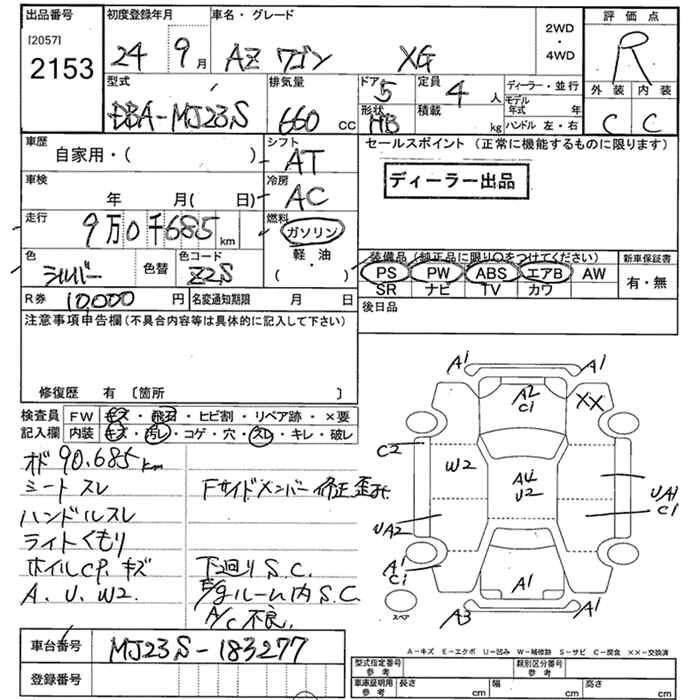 出品番号 初度登録年月 車名・グレード 評価点
[2057]
2153
24 9月 AZ ワゴン XG
2WD
・
4WD
R
型式 排気量 ドア 定員 ディーラー・並行 外装 内装
DBA-MJ23S 660 cc 5 4 人
形状 積載 モデル年式 年
HB kg ハンドル 左・右 C C
車歴 シフト セールスポイント (正常に機能するものに限ります)
自家用・( ) AT
ディーラー出品
車検 冷房
年 月( 日) AC
走行 燃料
9万0千685 km ガソリン
色 色替 色コード 軽・油 装備品(純正品に限り○をつけてください) 新車保証書
シルバー Z2S ( ) PS PW ABS エアB AW 有・無
SR ナビ TV カワ
R券 10,000 円 名変通知期限 月 日 後日品
注意事項申告欄(不具合内容等は具体的に記入して下さい)
修復歴 有 〔箇所 〕
検査員 FW キズ・飛石・ヒビ割・リペア跡・×要
記入欄 内装 キズ・汚レ・コゲ・穴・スレ・キレ・破レ
オド 90.685km
シート スレ Fサイドメンバー 修正歪み
ハンドルスレ
ライトくもり
ホイルCP.キズ 下回り S.C.
A.U.W2. E/gルーム内S.C.
A/C不良.
A1 A1
A2
C1
XX
C2
W2
AU
U2
UA1
C1
UA2
A1
C1
A1
スペア
A3 A1
車台番号 MJ23S-183277
登録番号
A-キズ E-エクボ U-凹み W-補修跡 S-サビ C-腐食 ××-交換済
型式指定番号 参考 類別区分番号 参考
車庫証明用 参考 長さ cm 幅 cm 高さ cm